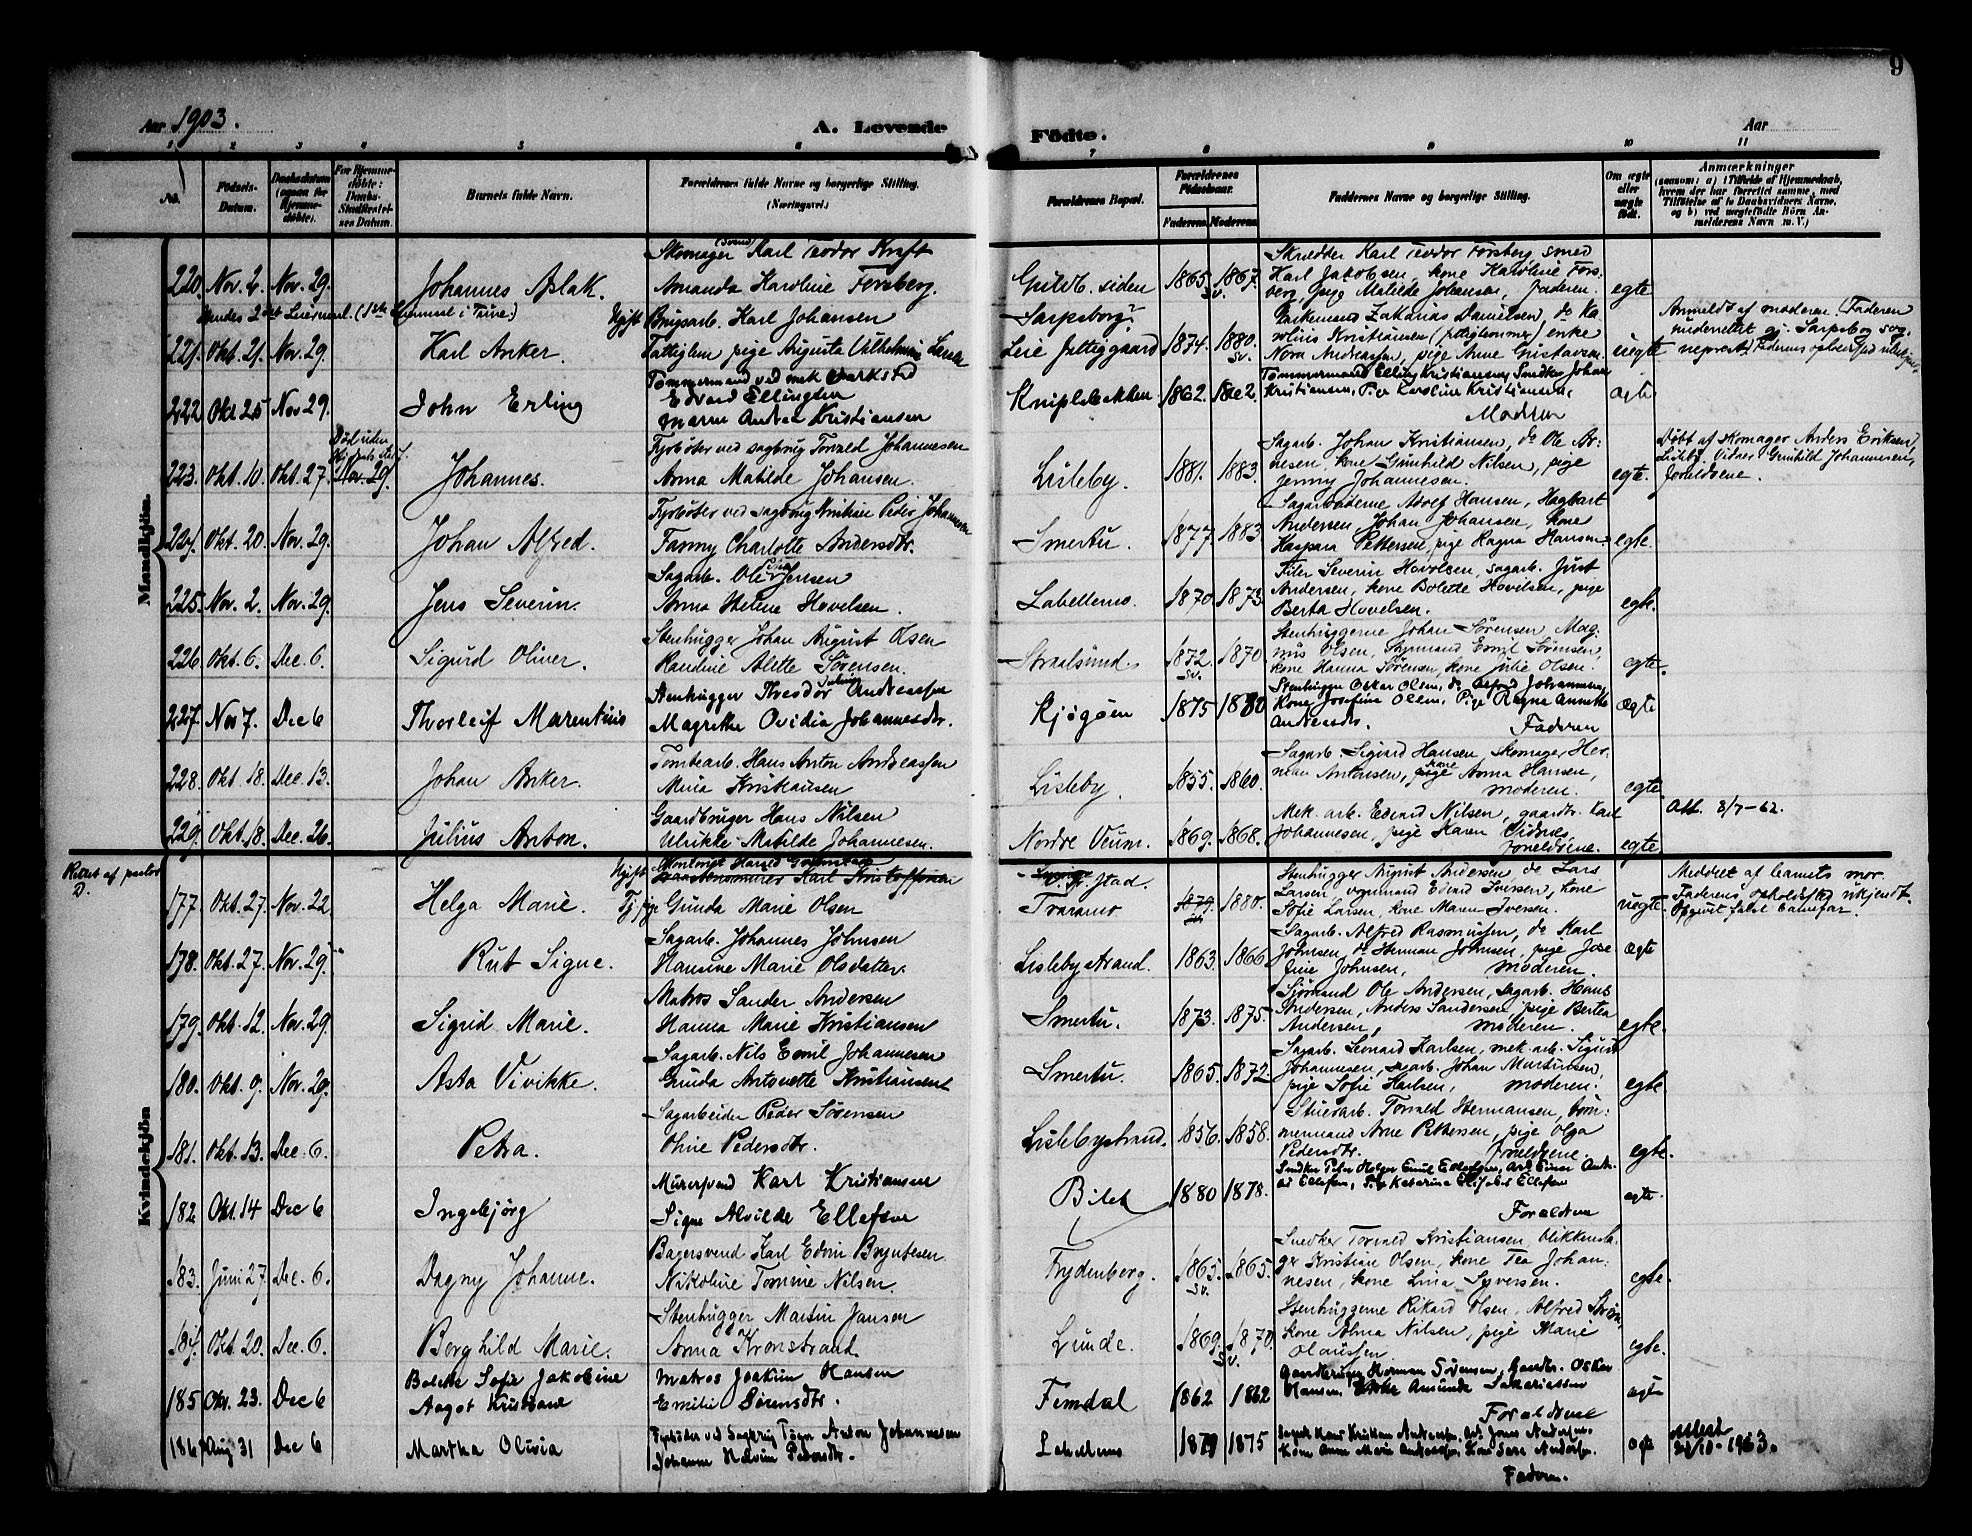 9
Aar 1903.
A. Levende Födte.
Aar
1 2 3 4 5 6 7 8 9 10 11
No.
Födsels-Datum.
Daabsdatum (ogsaa for Hjemmedöbte).
For Hjemmedöbte: Daabs-Stadfæstelsens Datum.
Barnets fulde Navn.
Forældrenes fulde Navne og borgerlige Stilling. (Næringsvei.)
Forældrenes Bopæl.
Forældrenes Födselsaar.
Faderens. Moderens.
Faddernes Navne og borgerlige Stilling.
Om ægte eller uægte födt.
Anmærkninger
(saasom: a) i Tilfælde af Hjemmedaab, hvem der har forrettet samme, med Tilföielse af to Daabsvidners Navne, og b) ved uægtefödte Börn Anmelderens Navn m. V.)
Mandkjön.
220. Nov. 2. Nov. 29. Johannes Aslak.
Skomager (Svend) Karl Teodor Kraft
Amanda Karoline Forsberg.
Guldb. siden 1865. sv. 1867.
Skrædder Karl Teodor Forsberg, smed
Karl Jakobsen, kone Karoline Fors-
berg, pige Matilde Johansen, Faderen. egte
221. Okt. 21. Nov. 29. Karl Anker.
Ugift Brugsarb. Karl Johansen
Fattiglem pige Augusta Vilhelmine
Sarpsborg
Leie Fattiggaard 1874. 1880. sv.
Zakarias Danielsen, do Ka-
rolius Kristiansen (fattiglemmer) enke
Nora Andreassen, pige Anne Gustavsen. uegte
Anmeldt af moderen. (Faderen
underrettet gj. Sarpsborg sog-
neprest) Faderens opholdssted
222 Okt 25 Nov 29. John Erling
Tömmermand ved mek Værksted
Edvard Ellingsen
Maren Andrea Kristiansen
Kniplebakken 1862. 1862.
Tömmermand Elling Kristiansen, Snedker Johan
Kristiansen, Pige Karoline Kristiansen,
Modren ægte
223. Okt. 10. Okt. 27. Nov. 29. Johannes.
Fyrböter ved sagbrug Torvald Johannesen
Anna Matilde Johansen.
Lisleby. 1881. 1883.
Sagarb. Johan Kristiansen, do Ole Ar-
nesen, kone Gunhild Nilsen, pige
Jenny Johannesen. egte.
Döbt af skomager Anders Eriksen,
Lisleby. Vidner Gunhild Johannesen,
foreldrene.
224. Okt. 20. Nov. 29. Johan Alfred.
Fyrböter ved sagbrug Kristian Peder Johannesen
Fanny Charlotte Andersdtr.
Smertu. 1877. 1883.
Sagarbeiderne Adolf Hansen, Hagbart
Andersen, Johan Johansen, kone
Kaspara Pettersen, pige Ragna Hansen. egte.
225. Nov. 2. Nov. 29. Jens Severin.
Sagarb. Ole Jensen
Anna Helene Hovelsen.
Labellemo. 1870. 1873.
Filer Severin Hovelsen, sagarb. Just
Andersen, kone Bolette Hovelsen, pige
Berta Hovelsen. egte.
226. Okt. 6. Dec. 6. Sigurd Oliver.
Stenhugger Johan August Olsen
Randine Alette Sörensen.
Straalsund. 1872. sv. 1870.
Stenhuggerne Johan Sörensen Mag-
nus Olsen, Emil Sörensen,
kone Hanna Sörensen, kone Julie Olsen. egte.
227. Nov 7. Dec 6 Thorleif Marentius
Stenhugger Theodor Andreassen
Magrethe Ovidia Johannesdtr.
Kjögöen 1875 1880
Stenhugger Oskar Olsen, do Alfred Johannesen,
Kone Josefine Olsen, Pige Ragna Annette
Andersdtr. Faderen Ægte
228. Okt. 18. Dec. 13. Johan Anker.
Tomtearb. Hans Anton Andreassen
Mina Kristiansen
Lisleby. 1855. 1860.
Sagarb. Sigvard Hansen skomager Her-
man Antonsen, pige kone Anna Hansen,
moderen. egte.
229. Okt. 18. Dec. 26. Julius Anton.
Gaardbruger Hans Nilsen
Ulrikke Matilde Johannesen.
Nordre Veum. 1869. 1868.
Mek. arb. Edvard Nilsen, gaardbr. Karl
Johannesen, pige Karen
foreldrene. egte
Att. 8/7-62.
Kvindekjön
Rettet af pastor D.
177. Okt. 27. Nov. 22 Helga Marie.
Ugift
Karl Kristoffersen
Tj. pige Gunda Marie Olsen
Traramo 1879. 1880.
Stenhugger August Andersen, do Lars
Larsen, vognmand Edvard Iversen, kone
Sofie Larsen, kone Maren Iversen. uegte.
Meddelt af barnets mor.
Faderens opholdssted ukjendt.
Opgivet falsk barnefar.
178. Okt. 27. Nov. 29. Rut Signe.
Sagarb. Johannes Johnsen
Hansine Marie Olsdatter.
Lislebystrand. 1863. 1866.
Sagarb. Alfred Rasmussen, do Karl
Johnsen, do Herman Johnsen, pige Jose-
fine Johnsen, moderen. ægte
179. Okt. 12. Nov. 29. Sigrid Marie.
Matros Sander Andersen
Hanna Marie Kristiansen
Smertu. 1873. 1875.
Sjömand Ole Andersen, sagarb. Hans
Andersen, Anders Sandersen, pige Berta
Andersen, moderen. egte.
180. Okt. 9. Nov. 29. Asta Vivikke.
Sagarb. Nils Emil Johannesen
Gunda Antonette Kristiansen
Smertu. 1865. 1872.
Sagarb. Leonard Karlsen, mek. arb. Sigurd
Johannesen, sagarb. Johan Martinsen,
pige Sofie Karlsen, moderen. egte
181. Okt. 13. Dec. 6. Petra.
Sagarbeider Peder Sörensen
Oline Pedersdtr.
Lislebystrand. 1856. 1858.
Stuesarb. Torvald Hermansen, töm-
mermand Arne Pettersen, pige Olga
Pedersdtr. foreldrene. egte.
182 Okt. 14 Dec 6 Ingebjörg
Murersvend Karl Kristiansen
Signe Alvilde Ellefsen
Bilet 1880 1878.
Snedker Peter Holger Emil Ellefsen, Arb Einar
Ellefsen, Pige Katarina Elisabet Ellefsen
Foreldrene egte.
183. Juni 27. Dec. 6. Dagny Johanne.
Bagersvend Karl Edvin Bryntesen
Nikoline Tomine Nilsen.
Frydenberg. 1865. sv. 1865.
Snedker Torvald Kristiansen, blikkensla-
ger Kristian Olsen, kone Tea Johan-
nesen, kone Lina Syversen. egte.
184. Okt. 20. Dec. 6. Borghild Marie.
Stenhugger Martin Jansen
Anna Kronstrand.
Lunde. 1869. sv. 1870.
Stenhuggerne Rikard Olsen, Alfred Ström,
kone Alma Nilsen, pige Marie
Olaussen. egte.
185 Okt. 23. Dec 6 Bolette Sofie Jakobine
Aagot Kristiane
Matros Joakim Hansen
Emilie Sörensdtr.
Femdal 1862 1862
Gaardbruger Herman Sörensen, Gaardbr. Oskar
Hansen, Enke Amunda Sakariassen
Foreldrene ægte
186 Aug 31 Dec 6 Martha Olivia
Fyrböder ved Sagbrug Thor Anton Johannesen
Johanne Helvine Pedersdtr.
Labellemo 1879 1875
Kristian Andersen, Arb. Jens Andersen,
Kone Anne Marie Andersen, Kone Sara Andersen
Faderen. ægte
Attest
24/10-1963.